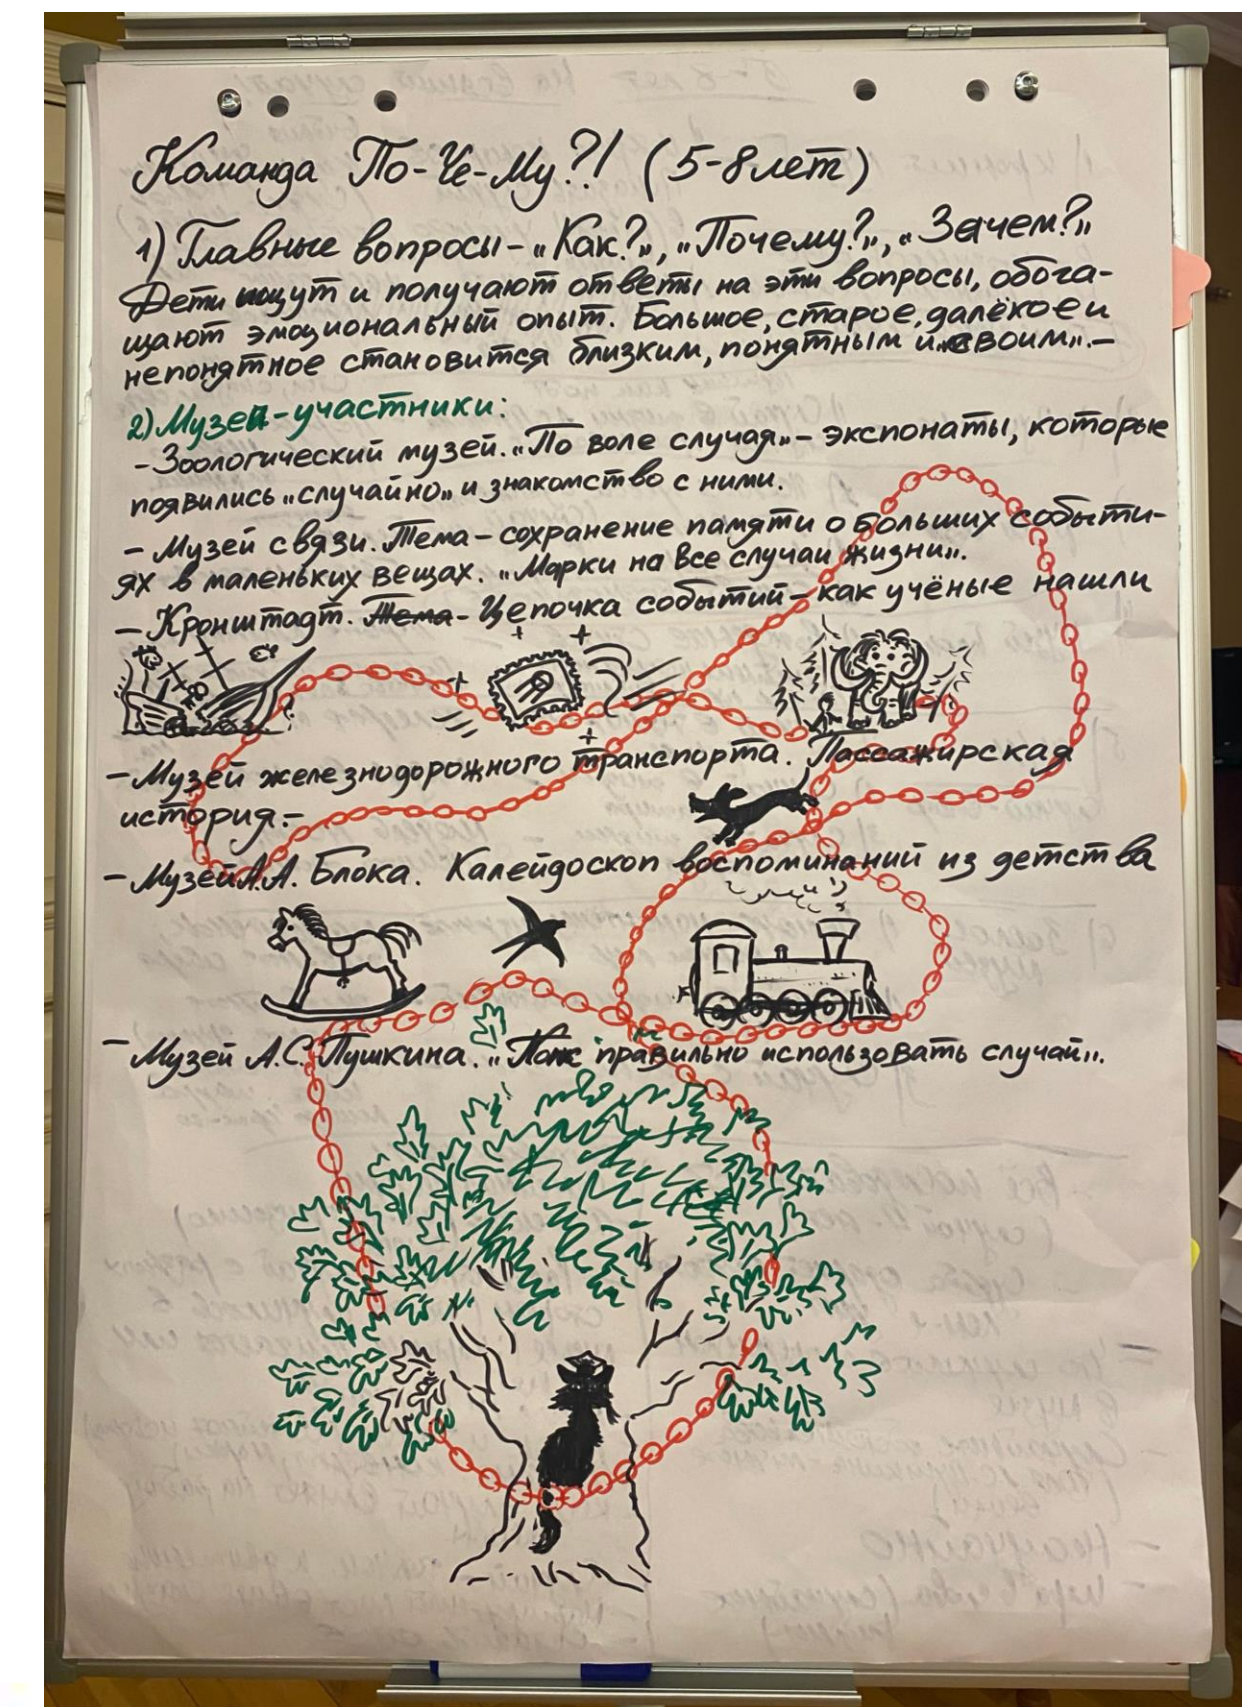 Команда По-Че-Му?! (5-8 лет)
1) Главные вопросы - „Как?", „Почему?", „Зачем?"
Дети ищут и получают ответы на эти вопросы, обога-
щают эмоциональный опыт. Большое, старое, далёкое и
непонятное становится близким, понятным и „своим". -
2) Музеи-участники:
- Зоологический музей. „По воле случая" - экспонаты, которые
появились „случайно" и знакомство с ними.
- Музей связи. Тема - сохранение памяти о больших событи-
ях в маленьких вещах. „Марки на все случаи жизни".
- Кронштадт. Тема - Цепочка событий - как учёные нашли
- Музей железнодорожного транспорта. Пассажирская
история. -
- Музей А.А. Блока. Калейдоскоп воспоминаний из детства
- Музей А.С. Пушкина. правильно использовать случай".